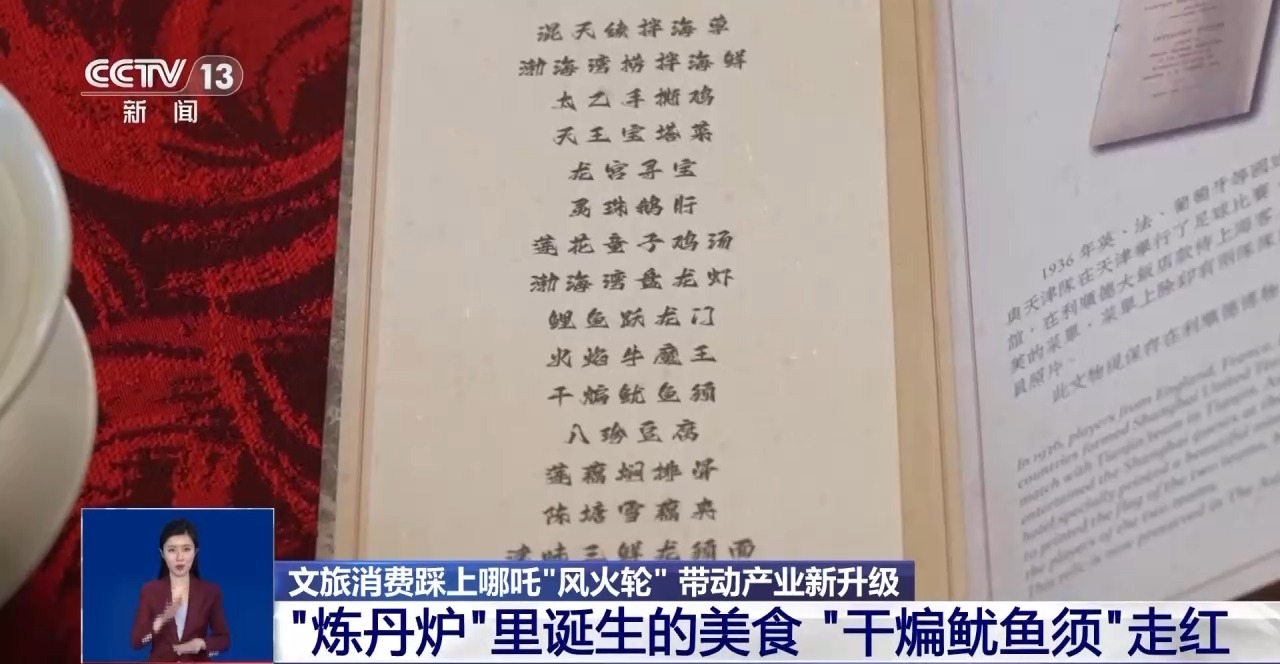 CCTV 13
新闻
混天绫拌海草
渤海湾捞拌海鲜
太乙手撕鸡
天王宝塔菜
龙宫寻宝
灵珠鹅肝
莲花童子鸡汤
渤海湾盘龙虾
鲤鱼跃龙门
火焰牛魔王
干煸鱿鱼须
八珍豆腐
莲藕焖排骨
陈塘雪藕爽
津味三鲜龙须面
1936年英、法、葡萄牙等國
與天津隊在天津舉行了足球比賽
誼,在利順德大飯店款待上海客
美的菜單,菜單上除印有兩隊隊
員照片。
此文物現保存在利順德博物
In 1936, players from England, France,
countries formed Shanghai United Team
match with Tianjin team in Tianjin.
entertained the Shanghai guests at the
hotel specially printed a beautiful
to printed the flag of the two teams,
the players of the two teams.
This relic is now preserved in The
文旅消费踩上哪吒"风火轮" 带动产业新升级
"炼丹炉"里诞生的美食 "干煸鱿鱼须"走红